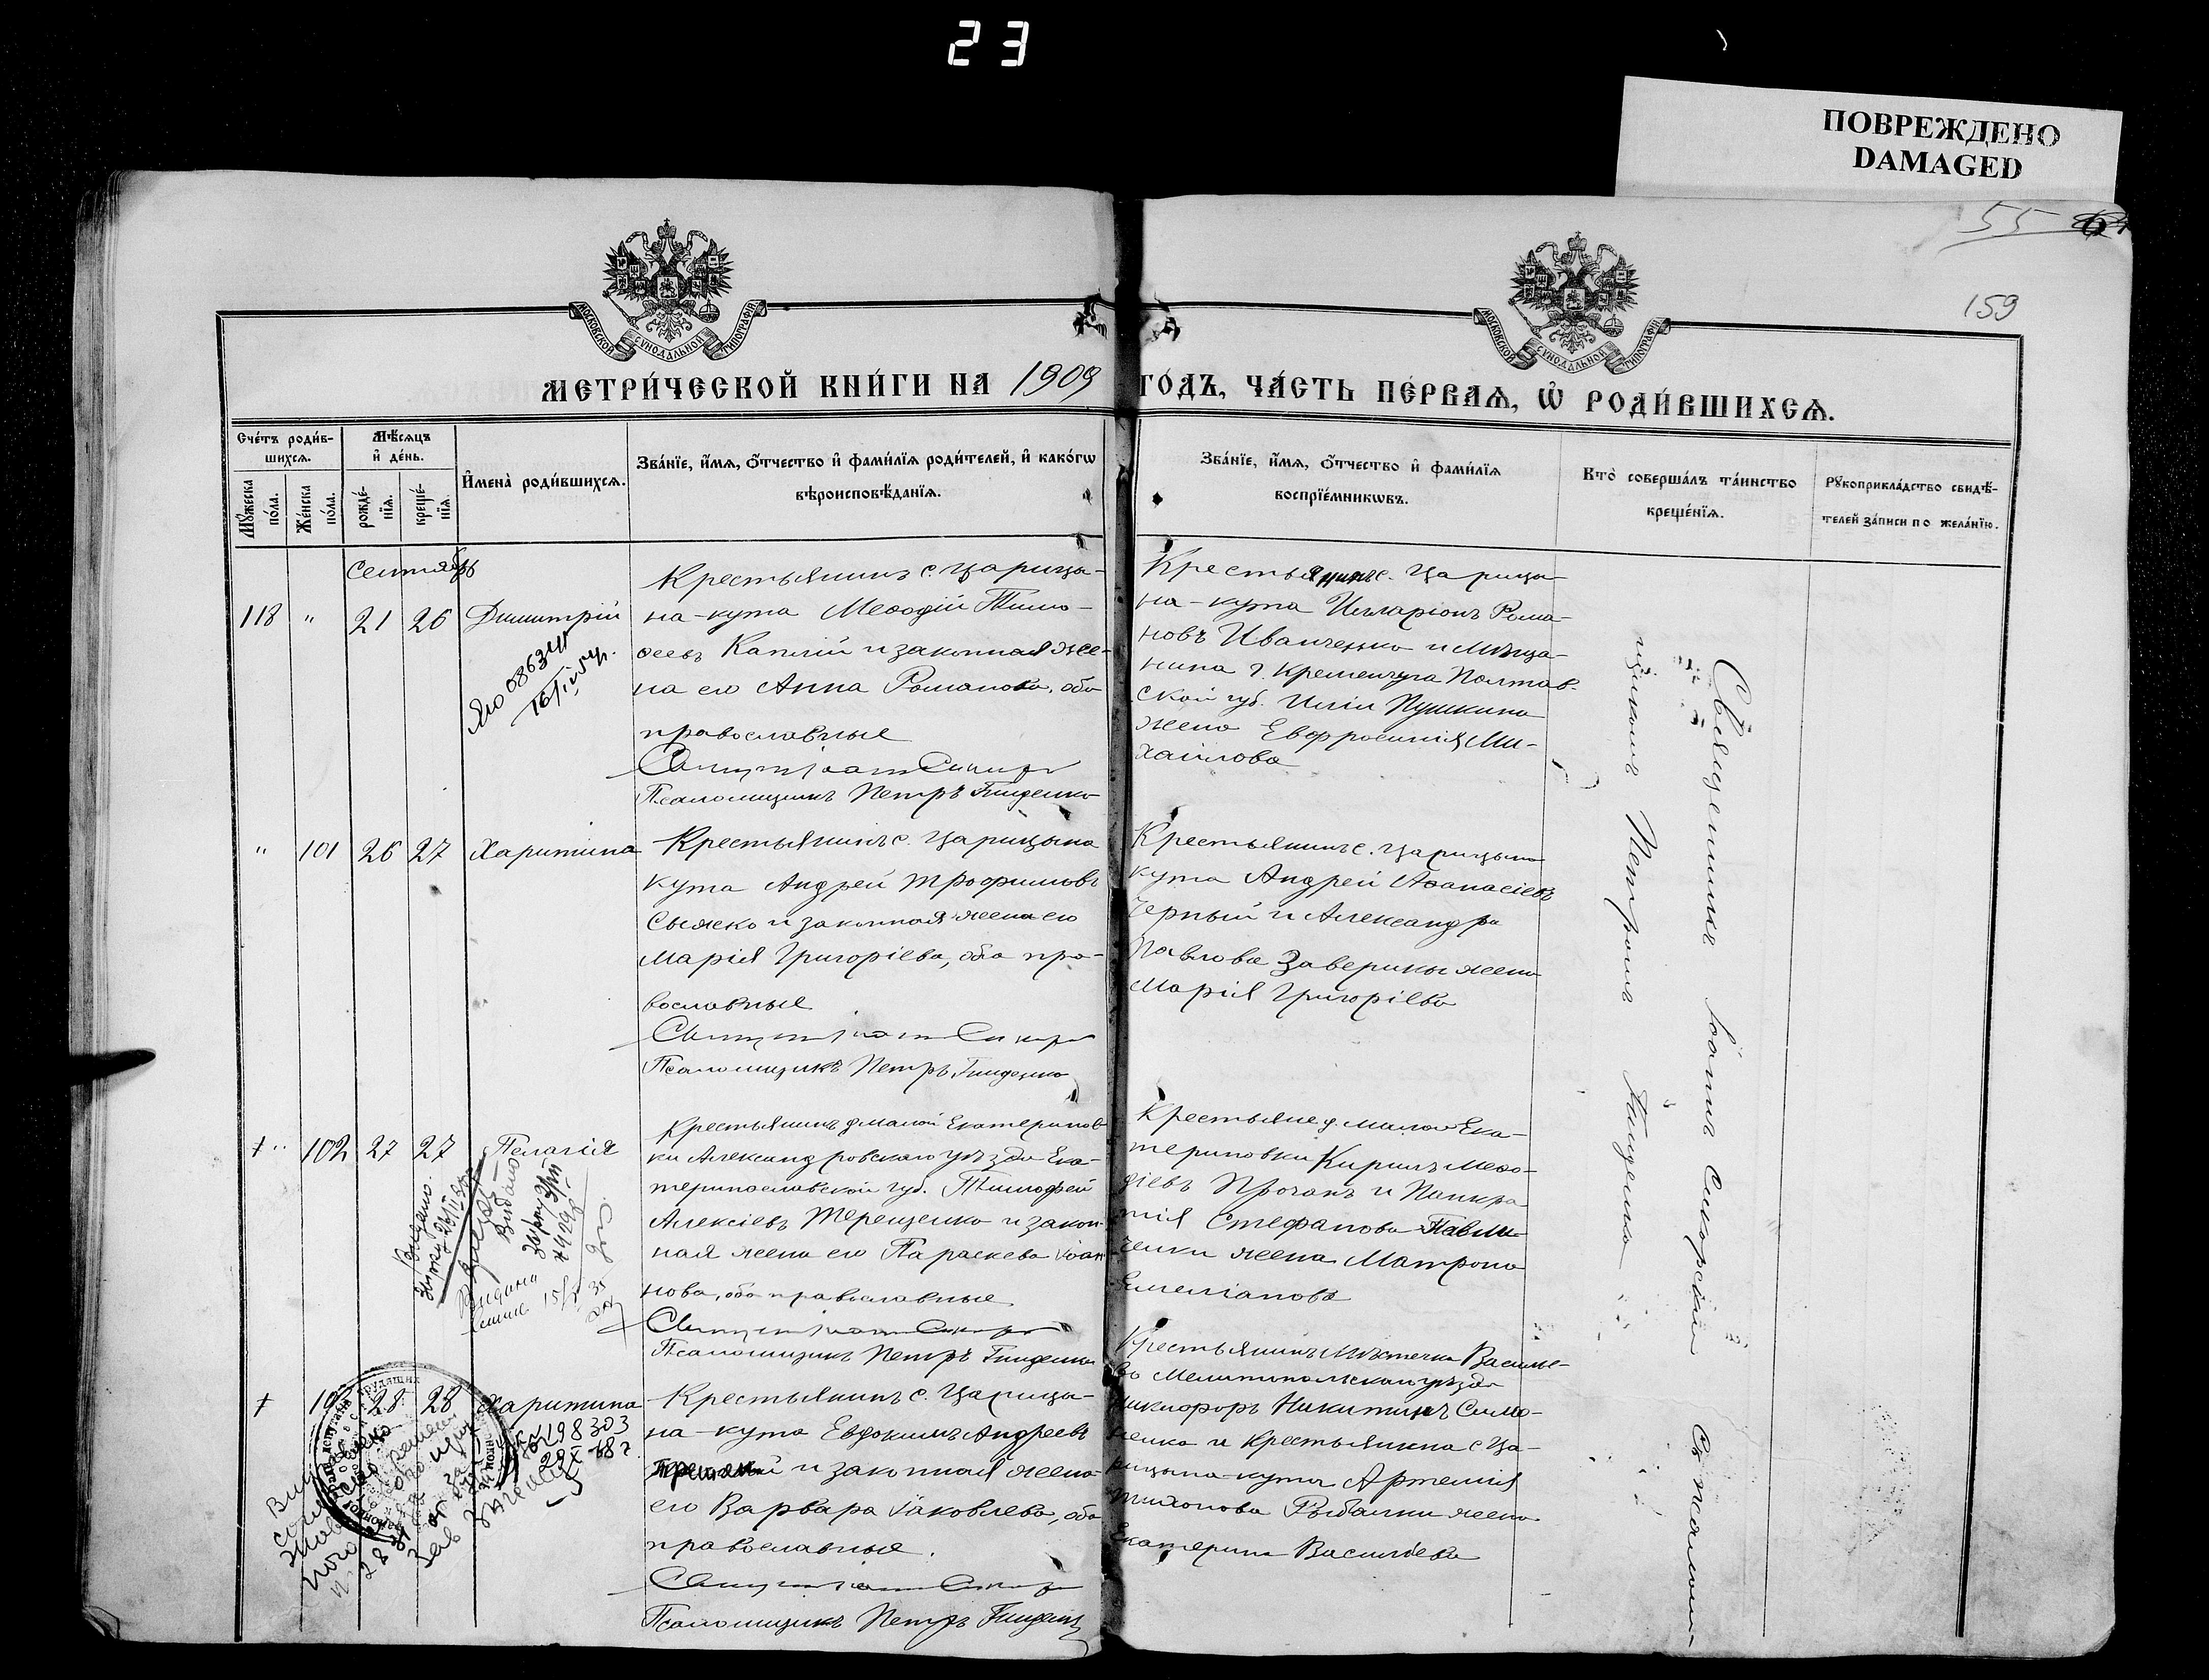 23
ПОВРЕЖДЕНО
DAMAGED
55
159
МОСКОВСКОЙ СУНОДАЛЬНОЙ ТИПОГРАФІИ
МОСКОВСКОЙ СУНОДАЛЬНОЙ ТИПОГРАФІИ
МЕТРИ́ЧЕСКОЙ КНИ́ГИ НА 1909 ГО́ДЪ, ЧА́СТЬ ПЕ́РВАѦ, Ѡ҆ РОДИ́ВШИХСѦ.
Сче́тъ роди́в-
шихсѧ.
Мꙋ́жеска
по́ла.
Же́нска
по́ла.
Мѣ́сѧцъ
и҆ де́нь.
рожде́-
нїѧ.
креще́-
нїѧ.
И҆мена̀ роди́вшихсѧ.
Зва́нїе, и҆́мѧ, ѻ҆́тчество и҆ фами́лїѧ роди́телей, и҆ како́гѡ
вѣроисповѣ́данїѧ.
Зва́нїе, и҆́мѧ, ѻ҆́тчество и҆ фами́лїѧ
воспрїе́мникѡвъ.
Кто̀ соверша́лъ та́инство
креще́нїѧ.
Рꙋкоприкла́дство свидѣ́-
телей за́писи по жела́нїю.
Сентябрь
118 " 21 26 Димитрій
Крестьянинъ с. Царицы-
на-кута Меѳодій Тимо-
ѳеевъ Каплій и законная же-
на его Анна Романова, оба
православные
Псаломщикъ Петръ Гниденко
Крестьянинъ с. Царицы-
на-кута Илларіонъ Рома-
новъ Иванченко и мѣща-
нина г. Кременчуга Полтав-
ской губ. Иліи Пушкина
жена Евфросинія Ми-
хайлова
" 101 26 27 Харитина
Крестьянинъ с. Царицына
кута Андрей Трофимовъ
Сысенко и законная жена его
Марія Григоріева, оба пра-
вославные
Псаломщикъ Петръ Гниденко
Крестьянинъ с. Царицына
кута Андрей Аѳанасіевъ
Черный и Александра
Павлова Заверики жена
Марія Григоріева
+ " 102 27 27 Пелагія
Крестьянинъ д. Малой Екатеринов-
ки Александровскаго уѣзда Ека-
теринославской губ. Тимофей
Алексіевъ Терещенко и закон-
ная жена его Параскева Іоан-
нова, оба православные
Псаломщикъ Петръ Гниденко
Крестьяне д. Малой Ека-
териновки Кирилъ Меѳо-
діевъ Прочанъ и Панкра-
тія Стефанова Павли-
ченки жена Матрона
Емеліанова
+ 103 28 28 Харитина
Крестьянинъ с. Царицы-
на-кута Евдокимъ Андреевъ
и законная жена
его Варвара Іаковлева, оба
православные.
Псаломщикъ Петръ Гниденко
Крестьянинъ мѣстечка Василье-
во Мелитопольскаго уѣзда
Никифоръ Никитинъ Симо-
ненко и крестьянина с. Ца-
рицына-кута Артемія
Тихонова Рыбалки жена
Екатерина Васильева
Священникъ Іоаннъ Сикорскій Съ псалом-
щикомъ Петромъ Гниденко